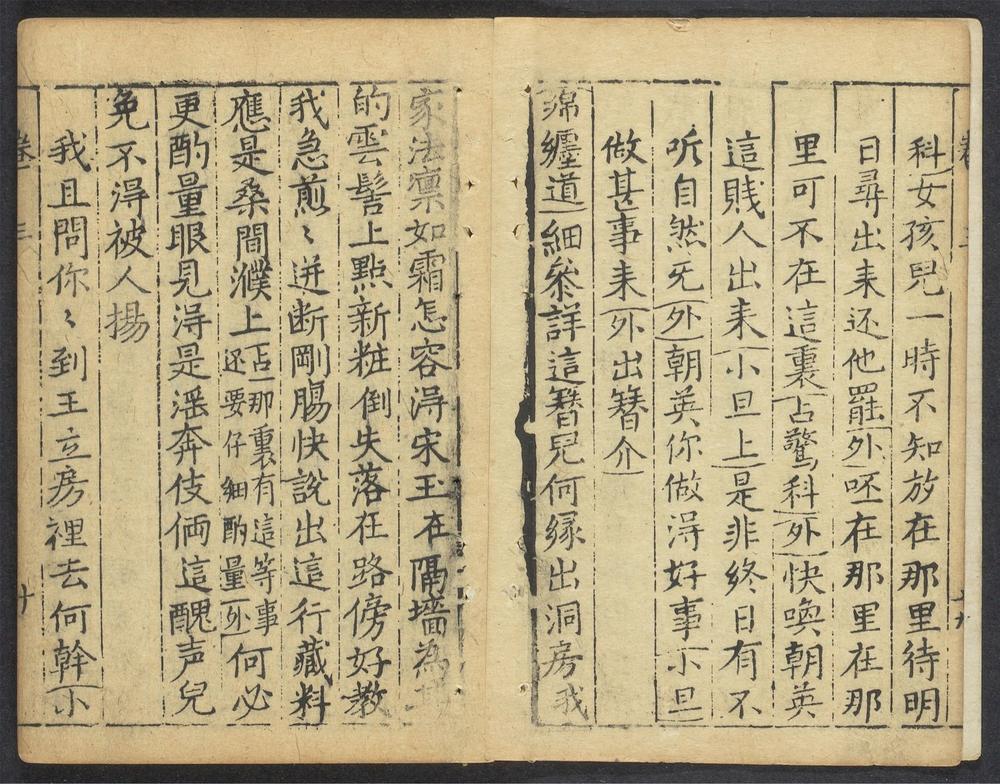 科女孩兒一時不知放在那里待明
日尋出耒还他罷外呸在那里在那
里可不在這裏占驚科外快喚朝英
這賤人出耒小旦上是非終日有不
听自然旡外朝英你做淂好事小旦
做甚事耒外出簪介
綿纏道細叅詳這簪児何縁出洞房我
家法凛如霜怎容淂宋玉在隔墻為
的雲髻上點新粧倒失落在路傍好教
我急煎〻迸断剛腸快說出這行藏料
應是桑間濮上占那裏有這等事还要仔細酌量外何必
更酌量眼見淂是滛奔伎倆這醜声兒
免不得被人揚
我且問你〻到王立房裡去何幹小
卷一